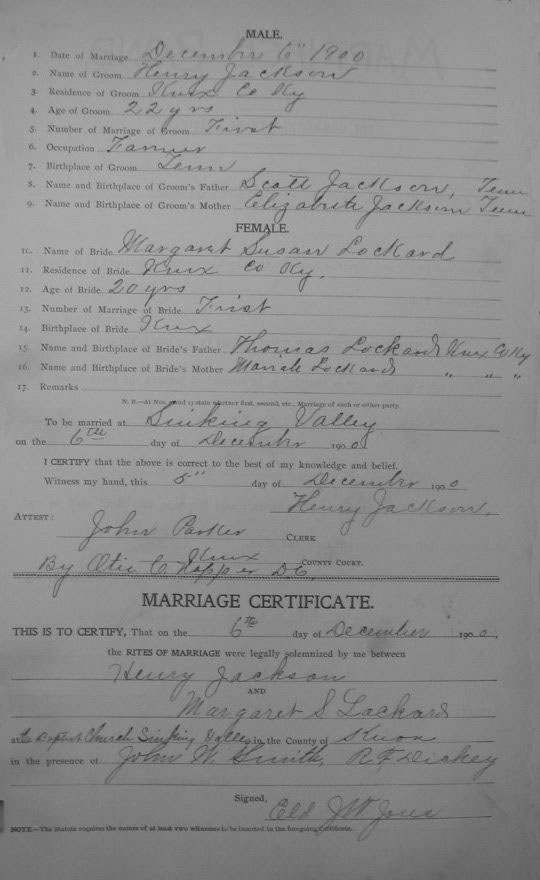 MALE.
1. Date of Marriage December 6" 1900
2. Name of Groom Henry Jackson
3. Residence of Groom Knx Co Ky
4. Age of Groom 22 yrs
5. Number of Marriage of Groom First
6. Occupation Farmer
7. Birthplace of Groom Tenn
8. Name and Birthplace of Groom's Father Scott Jackson, Tenn
9. Name and Birthplace of Groom's Mother Elizabeth Jackson Tenn
FEMALE.
10. Name of Bride Margaret Susan Lockard
11. Residence of Bride Knx Co Ky.
12. Age of Bride 20 yrs
13. Number of Marriage of Bride First
14. Birthplace of Bride Knx
15. Name and Birthplace of Bride's Father Thomas Lockard Knx Co Ky
16. Name and Birthplace of Bride's Mother Lockard " " "
17. Remarks
N. B.—At Nos. and state whether first, second, etc., Marriage of each or either party.
To be married at Sinking Valley
on the 6th day of December 1900
I CERTIFY that the above is correct to the best of my knowledge and belief.
Witness my hand, this 5" day of December 1900
Henry Jackson.
ATTEST:
John Parker CLERK
Knx COUNTY COURT.
By Otis C. Hopper D.C.
MARRIAGE CERTIFICATE.
THIS IS TO CERTIFY, That on the 6th day of December 1900,
the RITES OF MARRIAGE were legally solemnized by me between
Henry Jackson
AND
Margaret S Lackard
at the Baptist Church Sinking Valley in the County of Knox
in the presence of John W. Smith, R F Dickey
Signed,
Eld J W Jones
NOTE.—The Statute requires the names of at least two witnesses to be inserted in the foregoing Certificate.